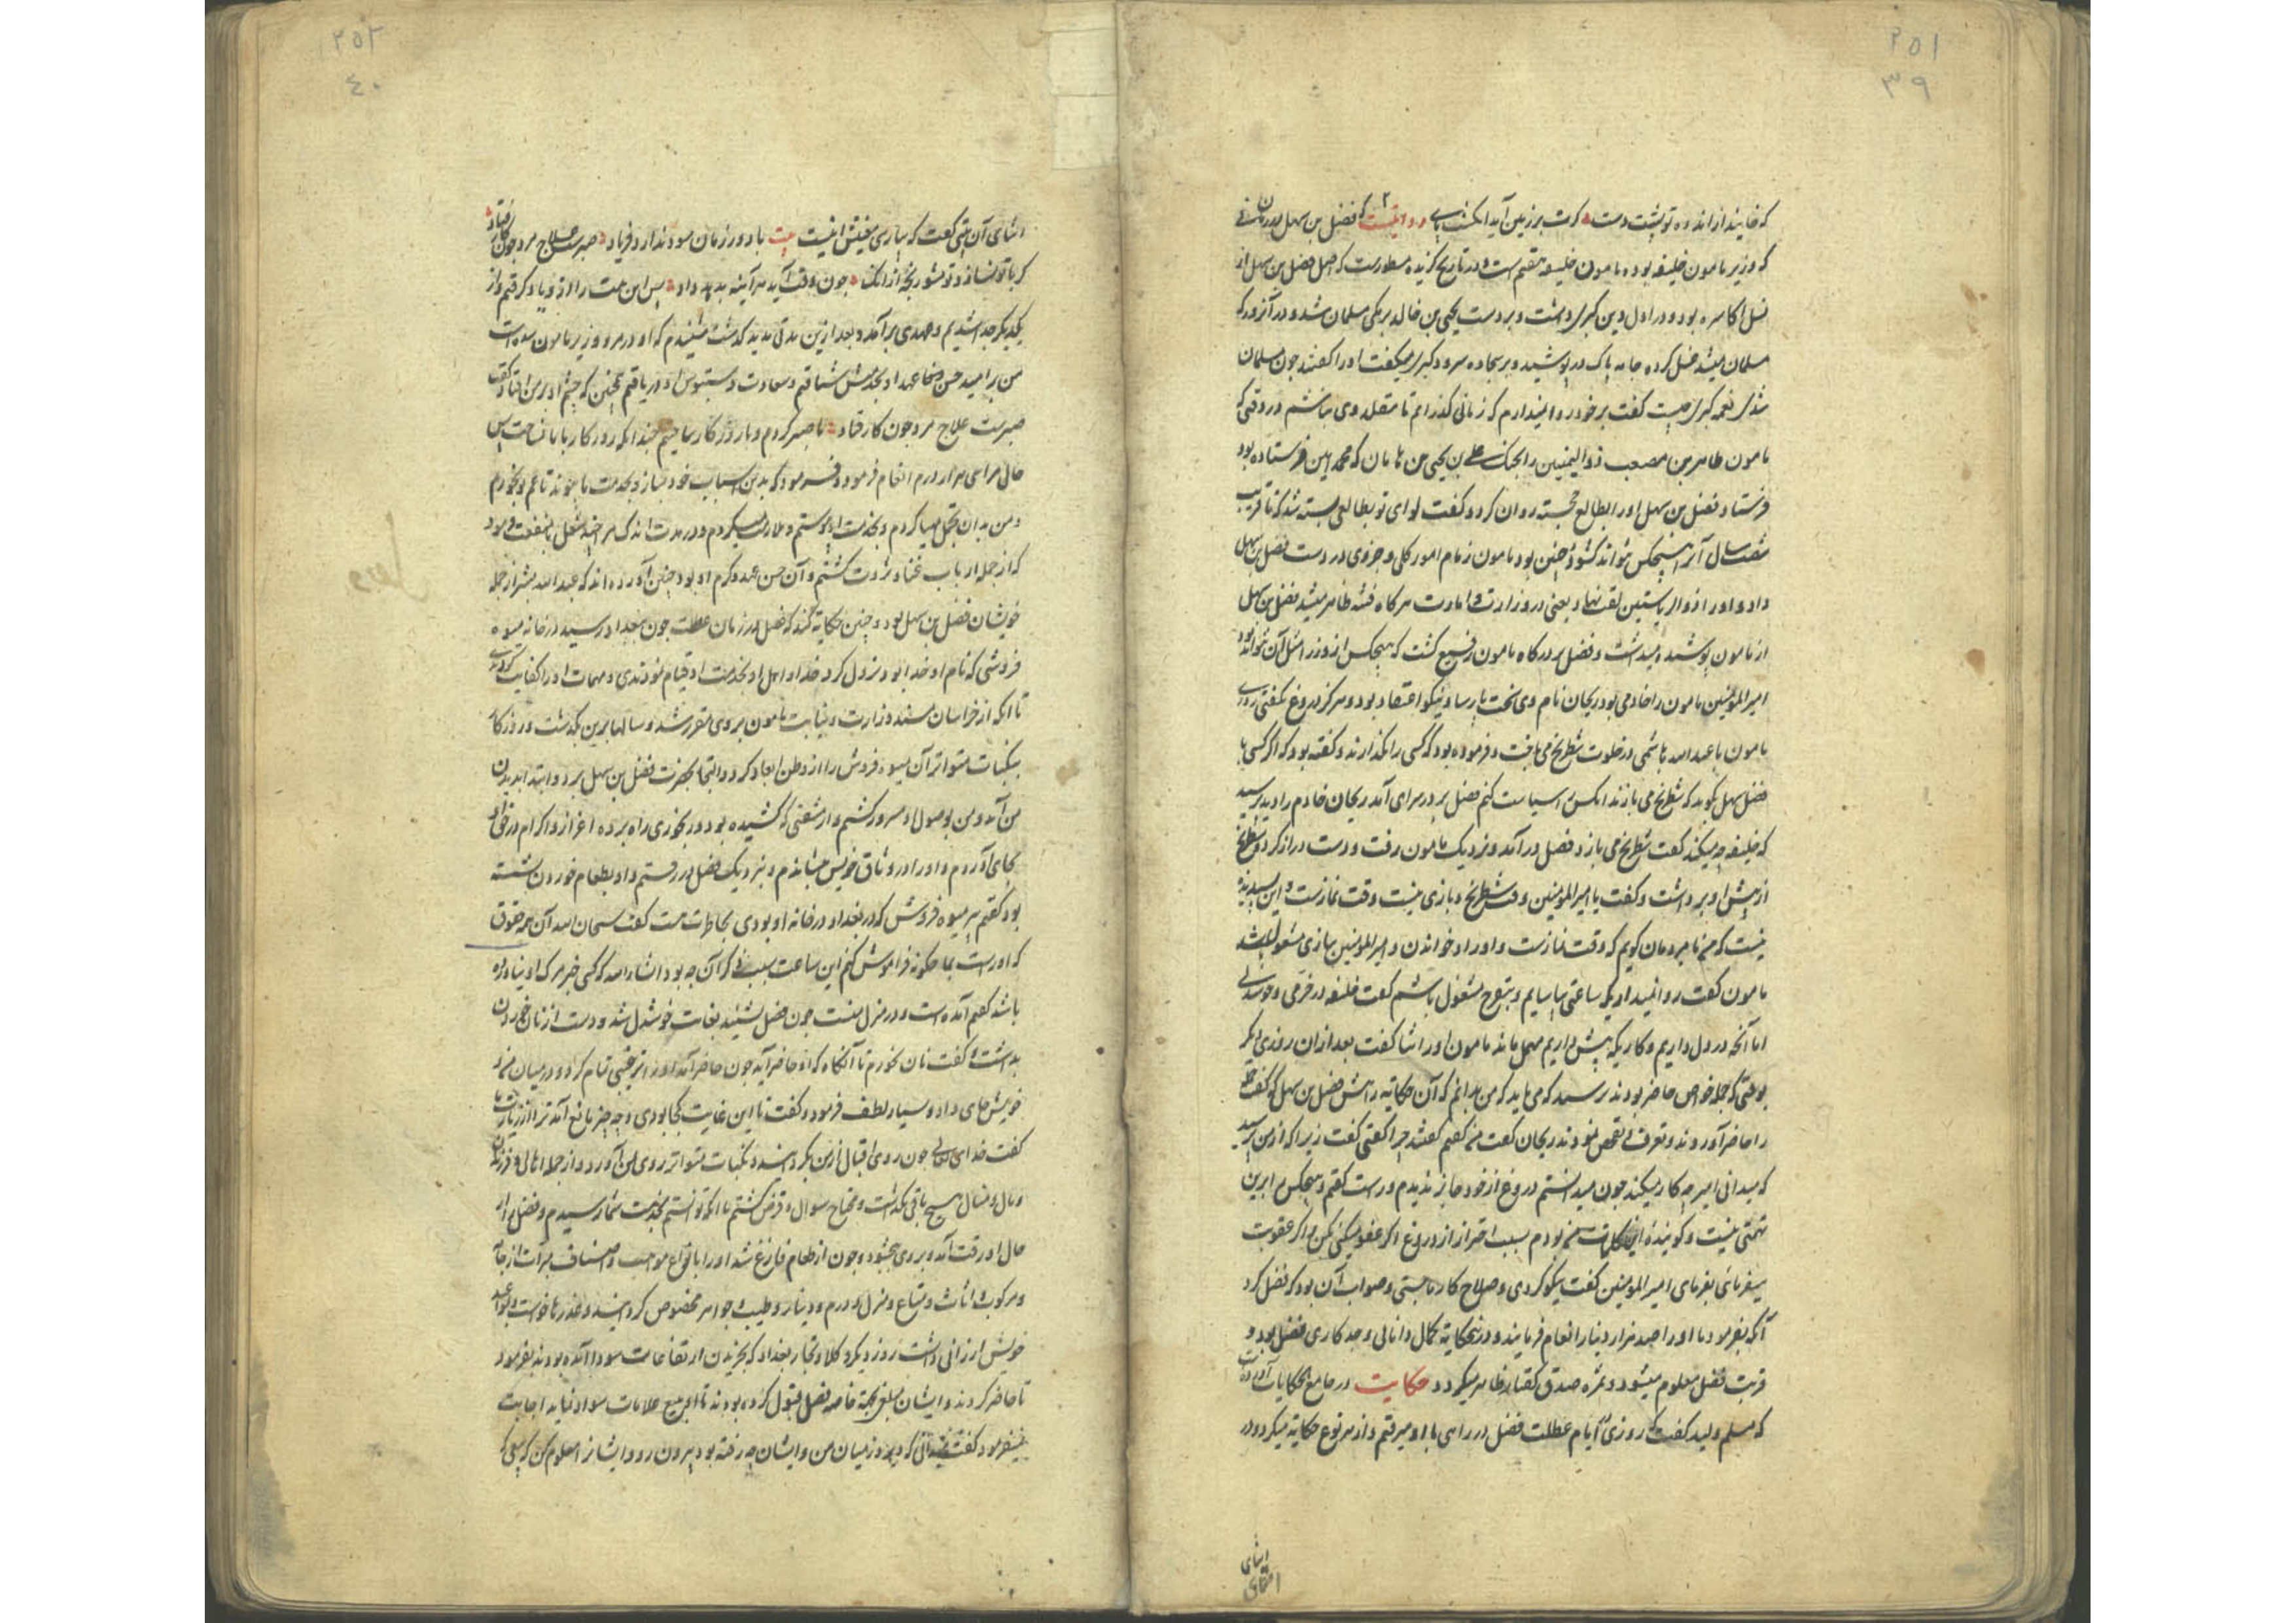 ٢٥١
٣٩
که خایند از انده تو پشت دست کرت بر زمین آید انگشت پای روایتست که فضل بن سهل در زمانی
که وزیر مامون خلیفه بوده مامون خلیفه هفتم است و در تاریخ گزیده مسطورست که اصل فضل بن سهل از
نسل اکاسره بود و در اول دین کبری داشت و بر دست یحیی بن خالد برمکی مسلمان شد و در آنروز که
مسلمان میشد غسل کرده جامه پاک در پوشید و بر سجاده سرود کبری میگفت او را گفتند چون مسلمان
شدی نغمه کبری چیست گفت بر خود روا نیدارم که زمانی گذرانم تا متقلد دی نباشم در وقتی که
مامون طاهر بن مصعب ذوالیمینین را بجنک علی بن یحیی بن هامان که محمد امین فرستاده بود
فرستاد فضل بن سهل او را بطالع خجسته روان کرد و گفت لوای تو بطالعی بسته شد که تا قریب
شصت سال آنرا هیچکس نتواند گشود و چنین بود مامون زمام امور کلی و جزوی در دست فضل بن سهل
داد و او را ذوالریاستین لقب نهاد یعنی در وزارت و امارت هرکاه فتنه ظاهر میشد فضل بن سهل
از مامون پوشیده میداشت و فضل بر درکاه مامون رفیع گشت که هیچکس از وزرا مثل آن نتواند بود
امیر المؤمنین مامون را خادمی بود ریحان نام وی سخت پارسا و نیکو اعتقاد بود و هرکز دروغ نگفتی روزی
مامون با عبدالله هاشمی در خلوت شطرنج می باخت و فرموده بود که کسی را نگذارند و گفته بود که اگر کسی با
فضل سهل بگوید که شطرنج می بازند انکس را سیاست کنم فضل بر در سرای آمد ریحان خادم را دید پرسید
که خلیفه چه میکند گفت شطرنج می بازد فضل در آمد و نزدیک مامون رفت و دست دراز کرد و شطرنج
از پیش او برداشت و گفت یا امیر المؤمنین وقت شطرنج و بازی نیست وقت نمازست و این پسندیده
نیست که من با مردمان گویم که وقت نمازست و اوراد خواندن و امیر المؤمنین ببازی مشغول باشد
مامون گفت روا نمیداری که ساعتی بیاسایم و بتفرج مشغول باشم گفت خلیفه در خرمی و خوشدلی
اما آنچه در دل داریم و کاریکه پیش داریم مهمل ماند مامون او را ثنا گفت بعد از ان روزی دیگر
بوقتی که جمله خواص حاضر بودند پرسید که می باید که من بدانم که آن حکایت پیش فضل بن سهل که گفت
را حاضر آوردند و تعرف و تفحص نمودند ریحان گفت من گفتم گفتند چرا گفتی گفت زیرا که از من پرسید
که میدانی امیر چه کار میکند چون میدانستم دروغ از خود جایز ندیدم و راست گفتم و هیچکس را برین
تهمتی نیست و گوینده این کلمات من بودم بسبب احتراز از دروغ اگر عفو میکنی بکن و اگر عقوبت
میفرمائی بفرمای امیر المؤمنین گفت نیکو کردی و صلاح کار ما جستی و صواب آن بود که فضل کرد
آنگه بفرمود تا او را صد هزار دینار انعام فرمایند و درین حکایت کمال دانائی و جد کاری فضل بود و
قربت فضل معلوم میشود و ثمره صدق گفتار ظاهر میگردد حکایت در جامع الحکایات آورده
که مسلم ولید گفت که روزی ایام عطلت فضل در راهی با او میرفتم و از هر نوع حکایت میکرد و در
اثنای
٢٥٢
٤٠
اثنای آن بیتی گفت که پارسی معنیش اینست بیت با دور زمان سود ندارد فریاد صبرست علاج مرد چون کار فتاد
گر با تو نسازد تو مشو رنجه از انک چون وقت آید هر آینه بدهد داد پس این بیت را از وی یاد گرفتم و از
یکدیگر جدا شدیم و عهدی بر آمد و بعد ازین مدتی مدید گذشت شنیدم که او در مرو وزیر مامون شده است
من بر امید حسن عهد او بخدمتش شتافتم و سعادت دستبوس او دریافتم همچنین که چشم او بر من افتاد گفت
صبرست علاج مرد چون کار فتاد ما صبر کردیم و با روزگار ساختیم چندانکه روزگار با ما بساخت پس
حالی مرا سی هزار درم انعام فرمود و فرمود که بدین اسباب خود بساز و بخدمت ما پیوند تا غم تو بخوریم
و من بدان تجمل مهیا کردم و بخدمت او پیوستم و ملازمت میکردم و در مدت اندک مرا چند شغل با منفعت فرمود
که از جمله ارباب غنا و ثروت گشتم و آن حسن عهد و کرم او بود چنین آورده اند که عبدالله بشر از جمله
خویشان فضل بن سهل بود و چنین حکایت کند که فضل در زمان عطلت چون ببغداد رسید در خانه میوه
فروشی که نام او خدابود نزول کرد خداداد و اهل او بخدمت او قیام نمودندی و مهمات او را کفایت کردندی
تا انکه از خراسان مسند وزارت و نیابت مامون بر وی مقرر شد و سالها برین بگذشت و روزگار
بنکبات متواتر آن میوه فروش را از وطن ابعاد کرد و التجا بحضرت فضل بن سهل برد و ابتدا بدیدن
من آمد و من بوصول او مسرور گشتم و از مشقتی که کشیده بود و رنجوری راه برده اعزاز و اکرام در خور او
بجای آوردم و او را در وثاق خویش بنشاندم و بنزدیک فضل در رفتم و او بطعام خوردن نشسته
بود گفتم پیر میوه فروش که در بغداد در خانه او بودی بخاطرت هست گفت سبحان الله آن همه حقوق
که او راست بما چگونه فراموش کنم این ساعت سبب ذکر آن چه بود انشاء الله که کسی خبر مرگ او نیاورده
باشد گفتم آمده است و در منزل منست چون فضل بشنید بغایت خوشدل شد و دست از نان خوردن
بداشت و گفت نان نخورم تا آنگاه که او حاضر آید چون حاضر آمد او را ترحیبی تمام کرد و در میان مزد
خویش جای داد و بسیار لطف فرمود و گفت تا این غایت کجا بودی و چه چیز مانع آمد ترا از زیارت ما
گفت خدای تعالی چون روی اقبال از من بگردانید و نکبات متواتر روی بمن آورد و از جمله اهالی و فرزندان
و مال و منال هیچ باقی نگذاشت و محتاج سوال و قرض گشتم تا انکه توانستم بخدمت شما رسیدم و فضل را از
حال او رقت آمد و بر وی ببخشود و چون از طعام فارغ شد او را بانواع مواهب و اصناف مبرات از جامه
و مرکوب و اثاث و متاع و منزل و درم و دینار و طیب و جواهر مخصوص گردانید و عذرها خواست و مواعید
خویش ارزانی داشت روز دیگر وکلا و تجار بغداد که بخریدن ارتفاعات سواد آمده بودند بفرمود
تا حاضر کردند و ایشان مبلغی بجهة خاصه فضل قبول کرده بودند تا ببیع غلات سواد نماید اجابت
نمیفرمود گفت میدانی که دیروز میان من و ایشان چه رفته بود بیرون رو و ایشانرا معلوم کن که بیعی که